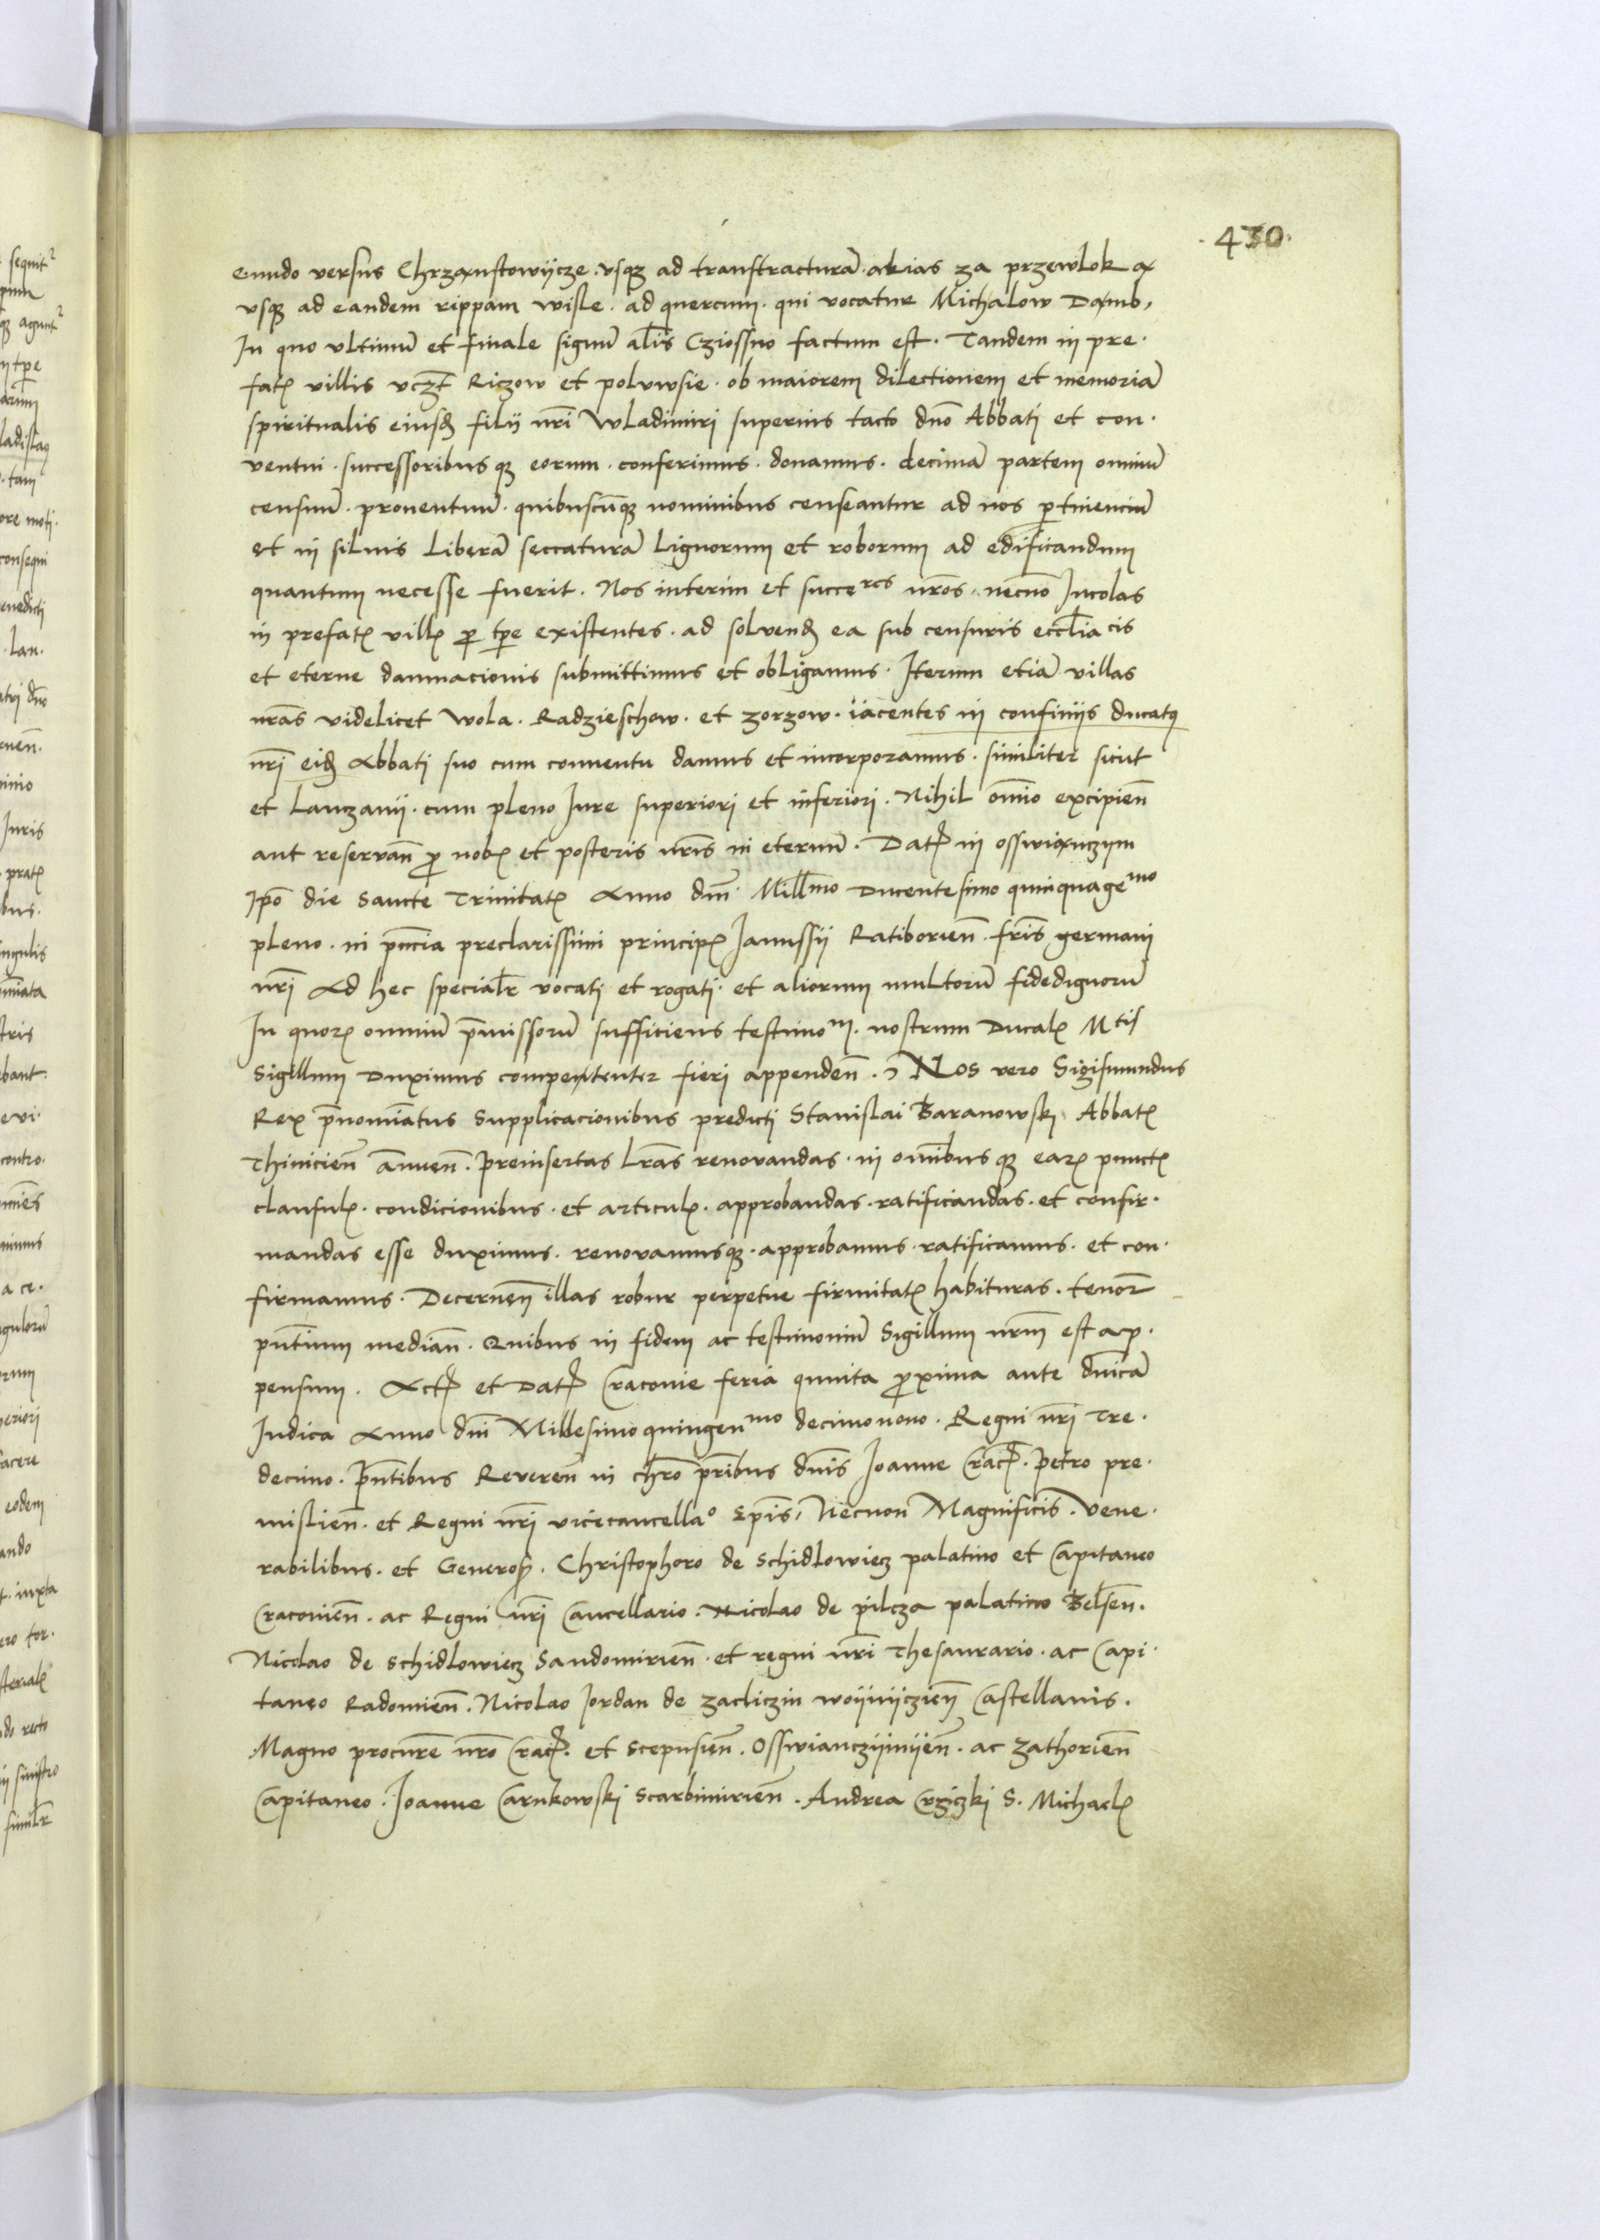 430
eundo versus Chrzanstowijcze. vsqz ad transtracturā. akias za przewlok a
vsqz ad eandem rippam wisle. ad quercum. qui vocatur Michalow Damb,
In quo vltimū et finale signū al̄s Cziossno factum est. Tandem in pre.
fatꝭ villis vcz̄t Riczow et polvwsie. ob maiorem dilectionem et memoriā
spiritualis eiusd filii nr̄i Wladimiri superius tacto dn̄o Abbati et con.
ventui. successoribus qz eorum. conferimus. donamus. decimā partem omniū
censuū. proventuū. quibuscūqz nominibus censeantur ad nos ꝑtinenciū
et in siluis liberā seccaturā lignorum et roborum ad edificandum
quantum necesse fuerit. Nos interim et succeres nr̄os. necnō Incolas
in prefatꝭ villꝭ ꝓ tp̄e existentes. ad solvend ea sub censuris eccl̄iacis
et eterne damnacionis submittimus et obligamus. Iterum etiā villas
nr̄as videlicet Wola. Radzieschow. et zorzow. iacentes in confiniis ducatꝰ
nr̄i eid Abbati suo cum conuentu damus et incorporamus. similiter sicut
et Lanczanij. cum pleno Iure superiori et inferiori. Nihil om̄io excipien̄
aut reservan̄ ꝓ nobꝭ et posteris nr̄is in eternū. Datꝭ in osswianczym
Ipō die Sancte Trinitatꝭ Anno dn̄i. Mill̄mo Ducentesimo quinquagemo
pleno. in pn̄cia preclarissimi principꝭ Janussij Ratiborien̄. fr̄is germani
nr̄i Ad hec special̄r vocati et rogati. et aliorum multorū fidedignorū
In quorꝭ omniū p̄missorū sufficiens testimom. nostrum Ducalꝭ Mtis
Sigillum Duximus competenter fieri appenden̄. Nos vero Sigismundus
Rex p̄nomīatus Supplicacionibus predicti Stanislai Baranowski Abbatꝭ
Thinicien̄ ānuen̄. preinsertas lr̄as renovandas. in om̄ibus qz earꝭ punctꝭ
clausulꝭ. condicionibus. et articulꝭ. approbandas. ratificandas. et confir.
mandas esse duximus. renovamusqz. approbamus. ratificamus. et con.
firmamus. Decernen̄ illas robur perpetue firmitatꝭ habituras. tenorꝭ
pn̄tium median̄. Quibus in fidem ac testimoniū Sigillum nr̄m est ap.
pensum. Actꝭ et Datꝭ Cracovie feria quinta ꝓxima ante dn̄icā
Iudica Anno dn̄i Millesimo quingenmo decimonono. Regni nr̄i Tre.
decimo. pn̄tibus Reveren̄ in chr̄o pr̄ibus dn̄is Joanne Cracꝭ. Petro pre.
mislien̄. et Regni nr̄i vicecancellaº Ep̄is, Necnon Magnificis. vene.
rabilibus. et Generosꝭ. Christophoro de schidlowiecz palatino et Capitaneo
Cracovien̄. ac Regni nr̄i Cancellario. Nicolao de pilcza palatino Belsen̄.
Nicolao de schidlowiecz Sandomirien̄. et regni nr̄i Thesaurario. ac Capi.
taneo Radomien̄. Nicolao Jordan de zacliczin woijnijczien̄ Castellanis.
Magno procur̄e nr̄o Cracꝭ. et scepusien̄. Osswianczijmijen̄. ac zathorien̄
Capitaneo. Joanne Carnkowski scarbimirien̄. Andrea Crziczki S. Michaelꝭ